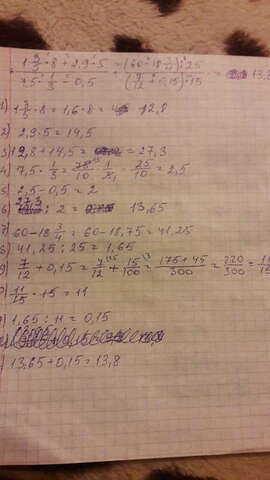 1 3/5 · 8 + 2,9 · 5 / 7,5 · 1/3 - 0,5 + (60 - 18 3/4) : 25 / (7/12 + 0,15) · 15 = 13,8
1) 1 3/5 · 8 = 1,6 · 8 = 12,8
2) 2,9 · 5 = 14,5
3) 12,8 + 14,5 = 27,3
4) 7,5 · 1/3 = 75/10 · 1/3 = 25/10 = 2,5
5) 2,5 - 0,5 = 2
6) 27,3 : 2 = 13,65
7) 60 - 18 3/4 = 60 - 18,75 = 41,25
8) 41,25 : 25 = 1,65
9) 7/12 + 0,15 = 7/12 + 15/100 = 175 + 45/300 = 220/300 =
) 11/15 · 15 = 11
) 1,65 : 11 = 0,15
) 13,65 + 0,15 = 13,8